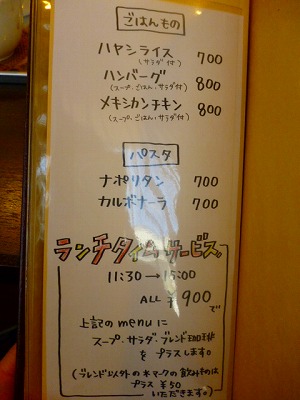 ごはんもの
ハヤシライス 700
(サラダ付)
ハンバーグ 800
(スープ・ごはん・サラダ付)
メキシカンチキン 800
(スープ・ごはん・サラダ付)
パスタ
ナポリタン 700
カルボナーラ 700
ランチタイムサービス
11:30→15:00
ALL ¥900で
上記のmenuに
スープ・サラダ・ブレンド珈琲
をプラスします。
(ブレンド以外の*マークの飲みものは
プラス ¥50
いただきます。)